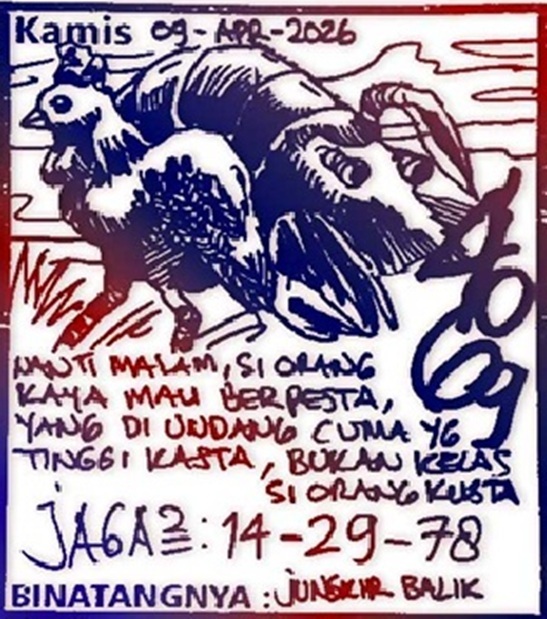 Kamis 09-APR-2026
40
69
NANTI MALAM, SI ORANG
KAYA MAU BERPESTA,
YANG DI UNDANG CUMA YG
TINGGI KASTA, BUKAN KELAS
SI ORANG KUSTA
JAGA2: 14-29-78
BINATANGNYA : JUNGKIR BALIK